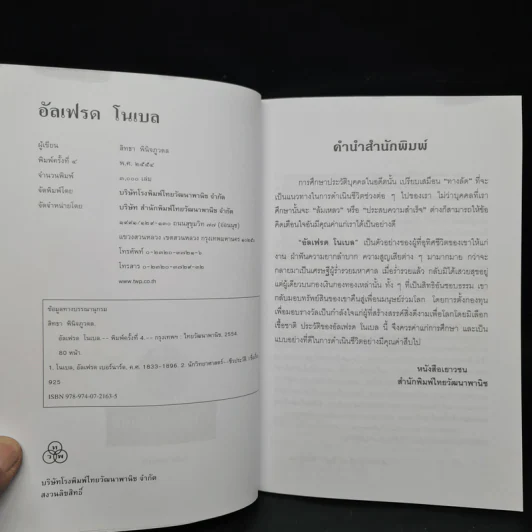 อัลเฟรด โนเบล
ผู้เขียน สิทธา พินิจภูวดล
พิมพ์ครั้งที่ ๔ พ.ศ. ๒๕๕๔
จำนวนพิมพ์ ๓,๐๐๐ เล่ม
จัดพิมพ์โดย บริษัทโรงพิมพ์ไทยวัฒนาพานิช จำกัด
จัดจำหน่ายโดย บริษัท สำนักพิมพ์ไทยวัฒนาพานิช จำกัด
ถนนสุขุมวิท
แขวงสวนหลวง เขตสวนหลวง กรุงเทพมหานคร
โทรศัพท์
โทรสาร
www.twp.co.th
ข้อมูลทางบรรณานุกรม
สิทธา พินิจภูวดล.
อัลเฟรด โนเบล.-- พิมพ์ครั้งที่ 4.-- กรุงเทพฯ : ไทยวัฒนาพานิช, 2554.
80 หน้า.
1. โนเบล, อัลเฟรด เบอร์นาร์ด, ค.ศ. 1833-1896. 2. นักวิทยาศาสตร์--ชีวประวัติ.
925
ISBN 978-974-07-2163-5
ท
ว พ
บริษัทโรงพิมพ์ไทยวัฒนาพานิช จำกัด
สงวนลิขสิทธิ์
คำนำสำนักพิมพ์
การศึกษาประวัติบุคคลในอดีตนั้น เปรียบเสมือน “ทางลัด” ที่จะ
เป็นแนวทางในการดำเนินชีวิตช่วงต่อ ๆ ไปของเรา ไม่ว่าบุคคลที่เรา
ศึกษานั้นจะ “ล้มเหลว” หรือ “ประสบความสำเร็จ” ต่างก็สามารถให้ข้อ
คิดเตือนใจอันมีคุณค่าแก่เราได้เป็นอย่างดี
“อัลเฟรด โนเบล” เป็นตัวอย่างของผู้ที่อุทิศชีวิตของเขาให้แก่
งาน ฝ่าฟันความยากลำบาก ความสูญเสียต่าง ๆ มามากมาย กว่าจะ
กลายมาเป็นเศรษฐีผู้ร่ำรวยมหาศาล เมื่อร่ำรวยแล้ว กลับมิได้เสวยสุขอยู่
แต่ผู้เดียวบนกองเงินกองทองเหล่านั้น ทั้ง ๆ ที่เป็นสิทธิอันชอบธรรม เขา
กลับมอบทรัพย์สินของเขาคืนสู่เพื่อนมนุษย์ร่วมโลก โดยการตั้งกองทุน
เพื่อมอบรางวัลเป็นกำลังใจแก่ผู้ที่สร้างสรรค์สิ่งดีงามเพื่อโลกโดยมิเลือก
เชื้อชาติ ประวัติของอัลเฟรด โนเบล นี้ จึงควรค่าแก่การศึกษา และเป็น
แบบอย่างที่ดีในการดำเนินชีวิตอย่างมีคุณค่าสืบไป
หนังสือเยาวชน
สำนักพิมพ์ไทยวัฒนาพานิช